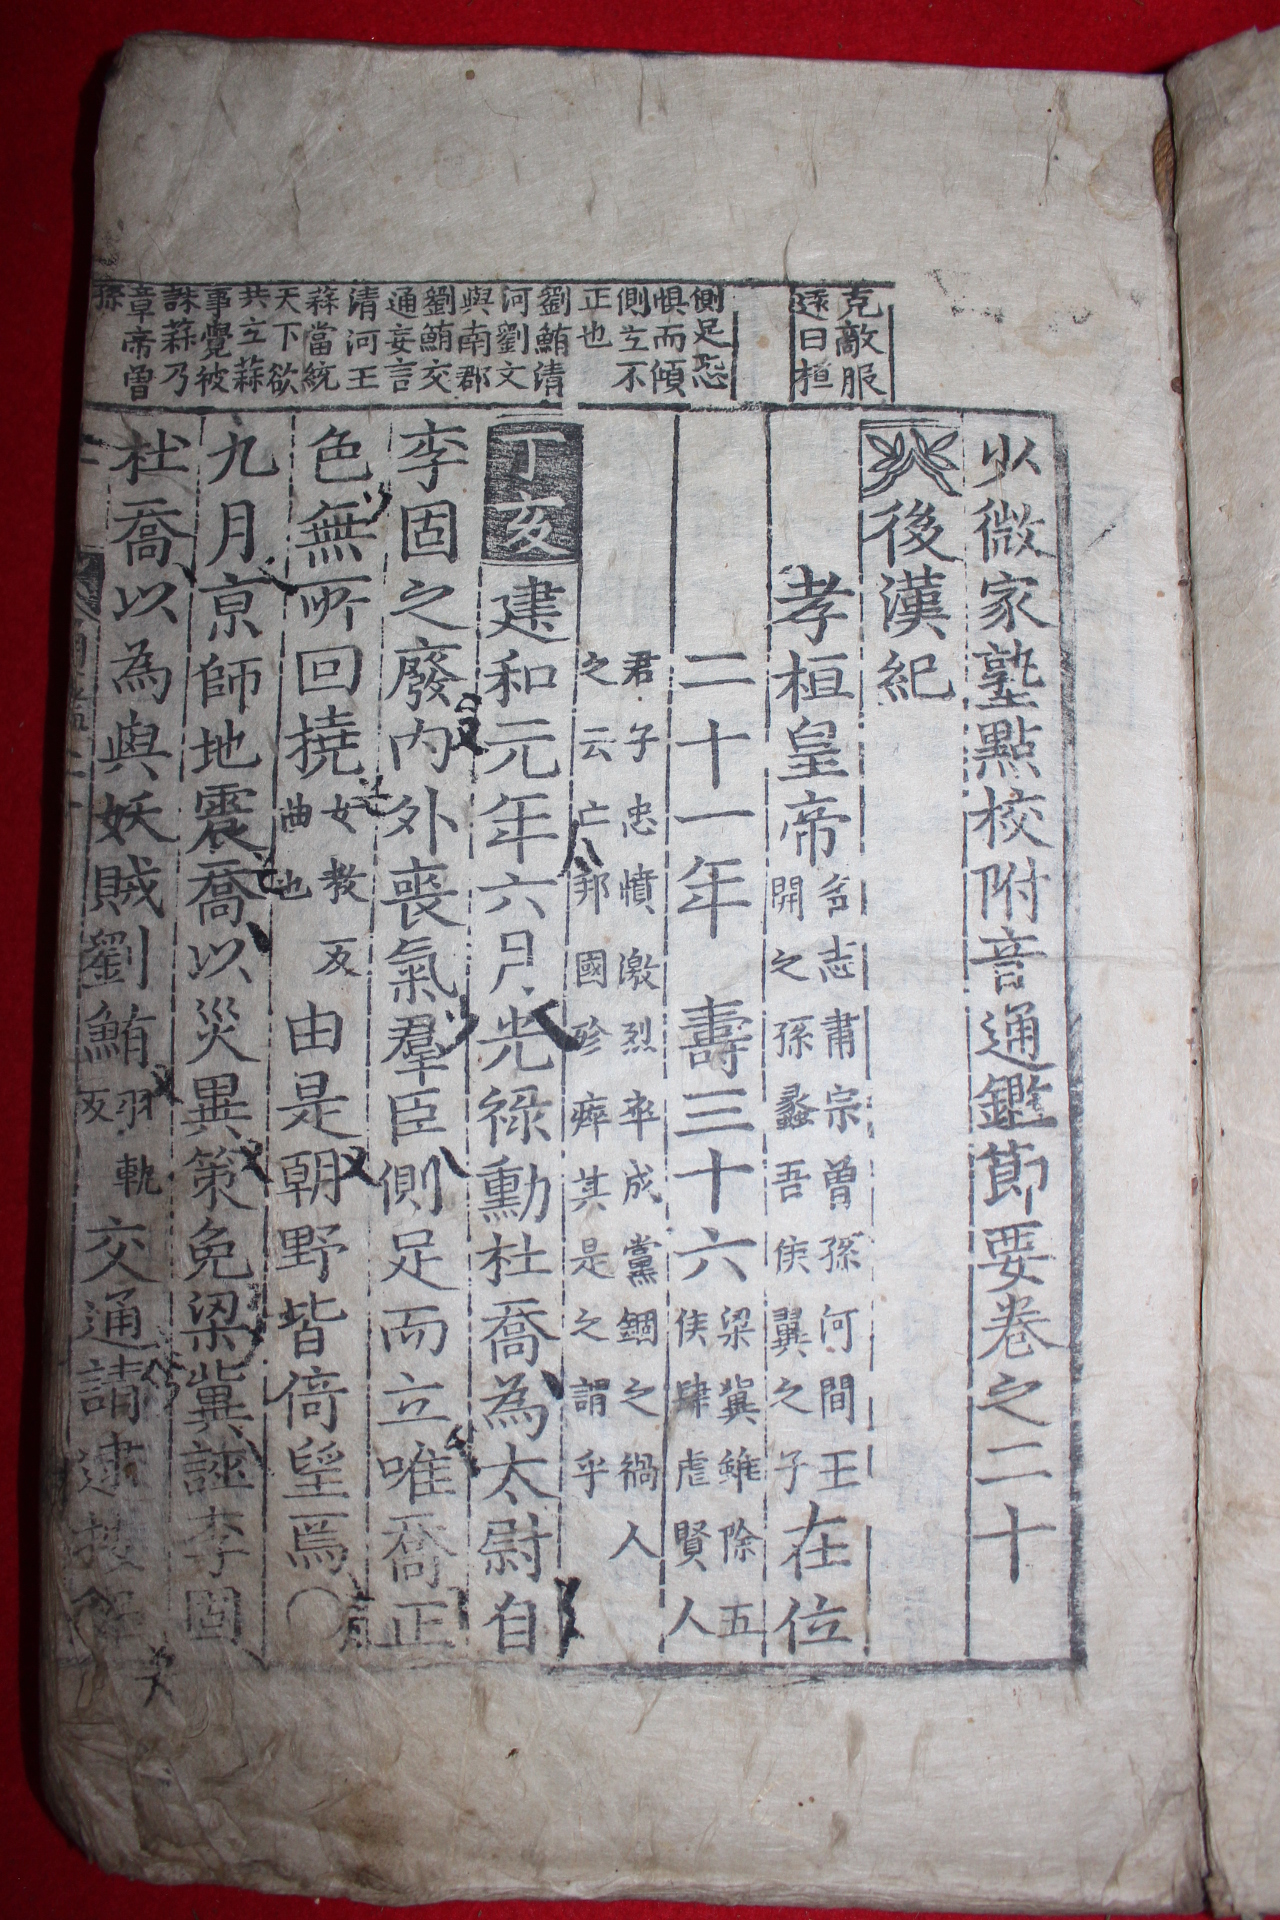 克敵服
遠曰桓
側足恐
惧而傾
側立不
正也
劉鮪清
河劉文
與南郡
劉鮪交
通妄言
清河王
蒜當統
天下欲
共立蒜
事覺被
誅蒜乃
章帝曾
孫
少微家塾點校附音通鑑節要卷之二十
後漢紀
孝桓皇帝
名志肅宗曾孫河間王
開之孫蠡吾侯翼之子
在位
二十一年 壽三十六
梁冀雖除五
侯肆虐賢人
君子忠憤激烈卒成黨錮之禍人
之云亡邦國殄瘁其是之謂乎
丁亥建和元年六月光祿勳杜喬為太尉自
李固之廢內外喪氣羣臣側足而立唯喬正
色無所回撓
女教反
曲也
由是朝野皆倚望焉○
九月京師地震喬以災異策免梁冀誣李固
杜喬以為與妖賊劉鮪
羽軌
反
交通請逮按